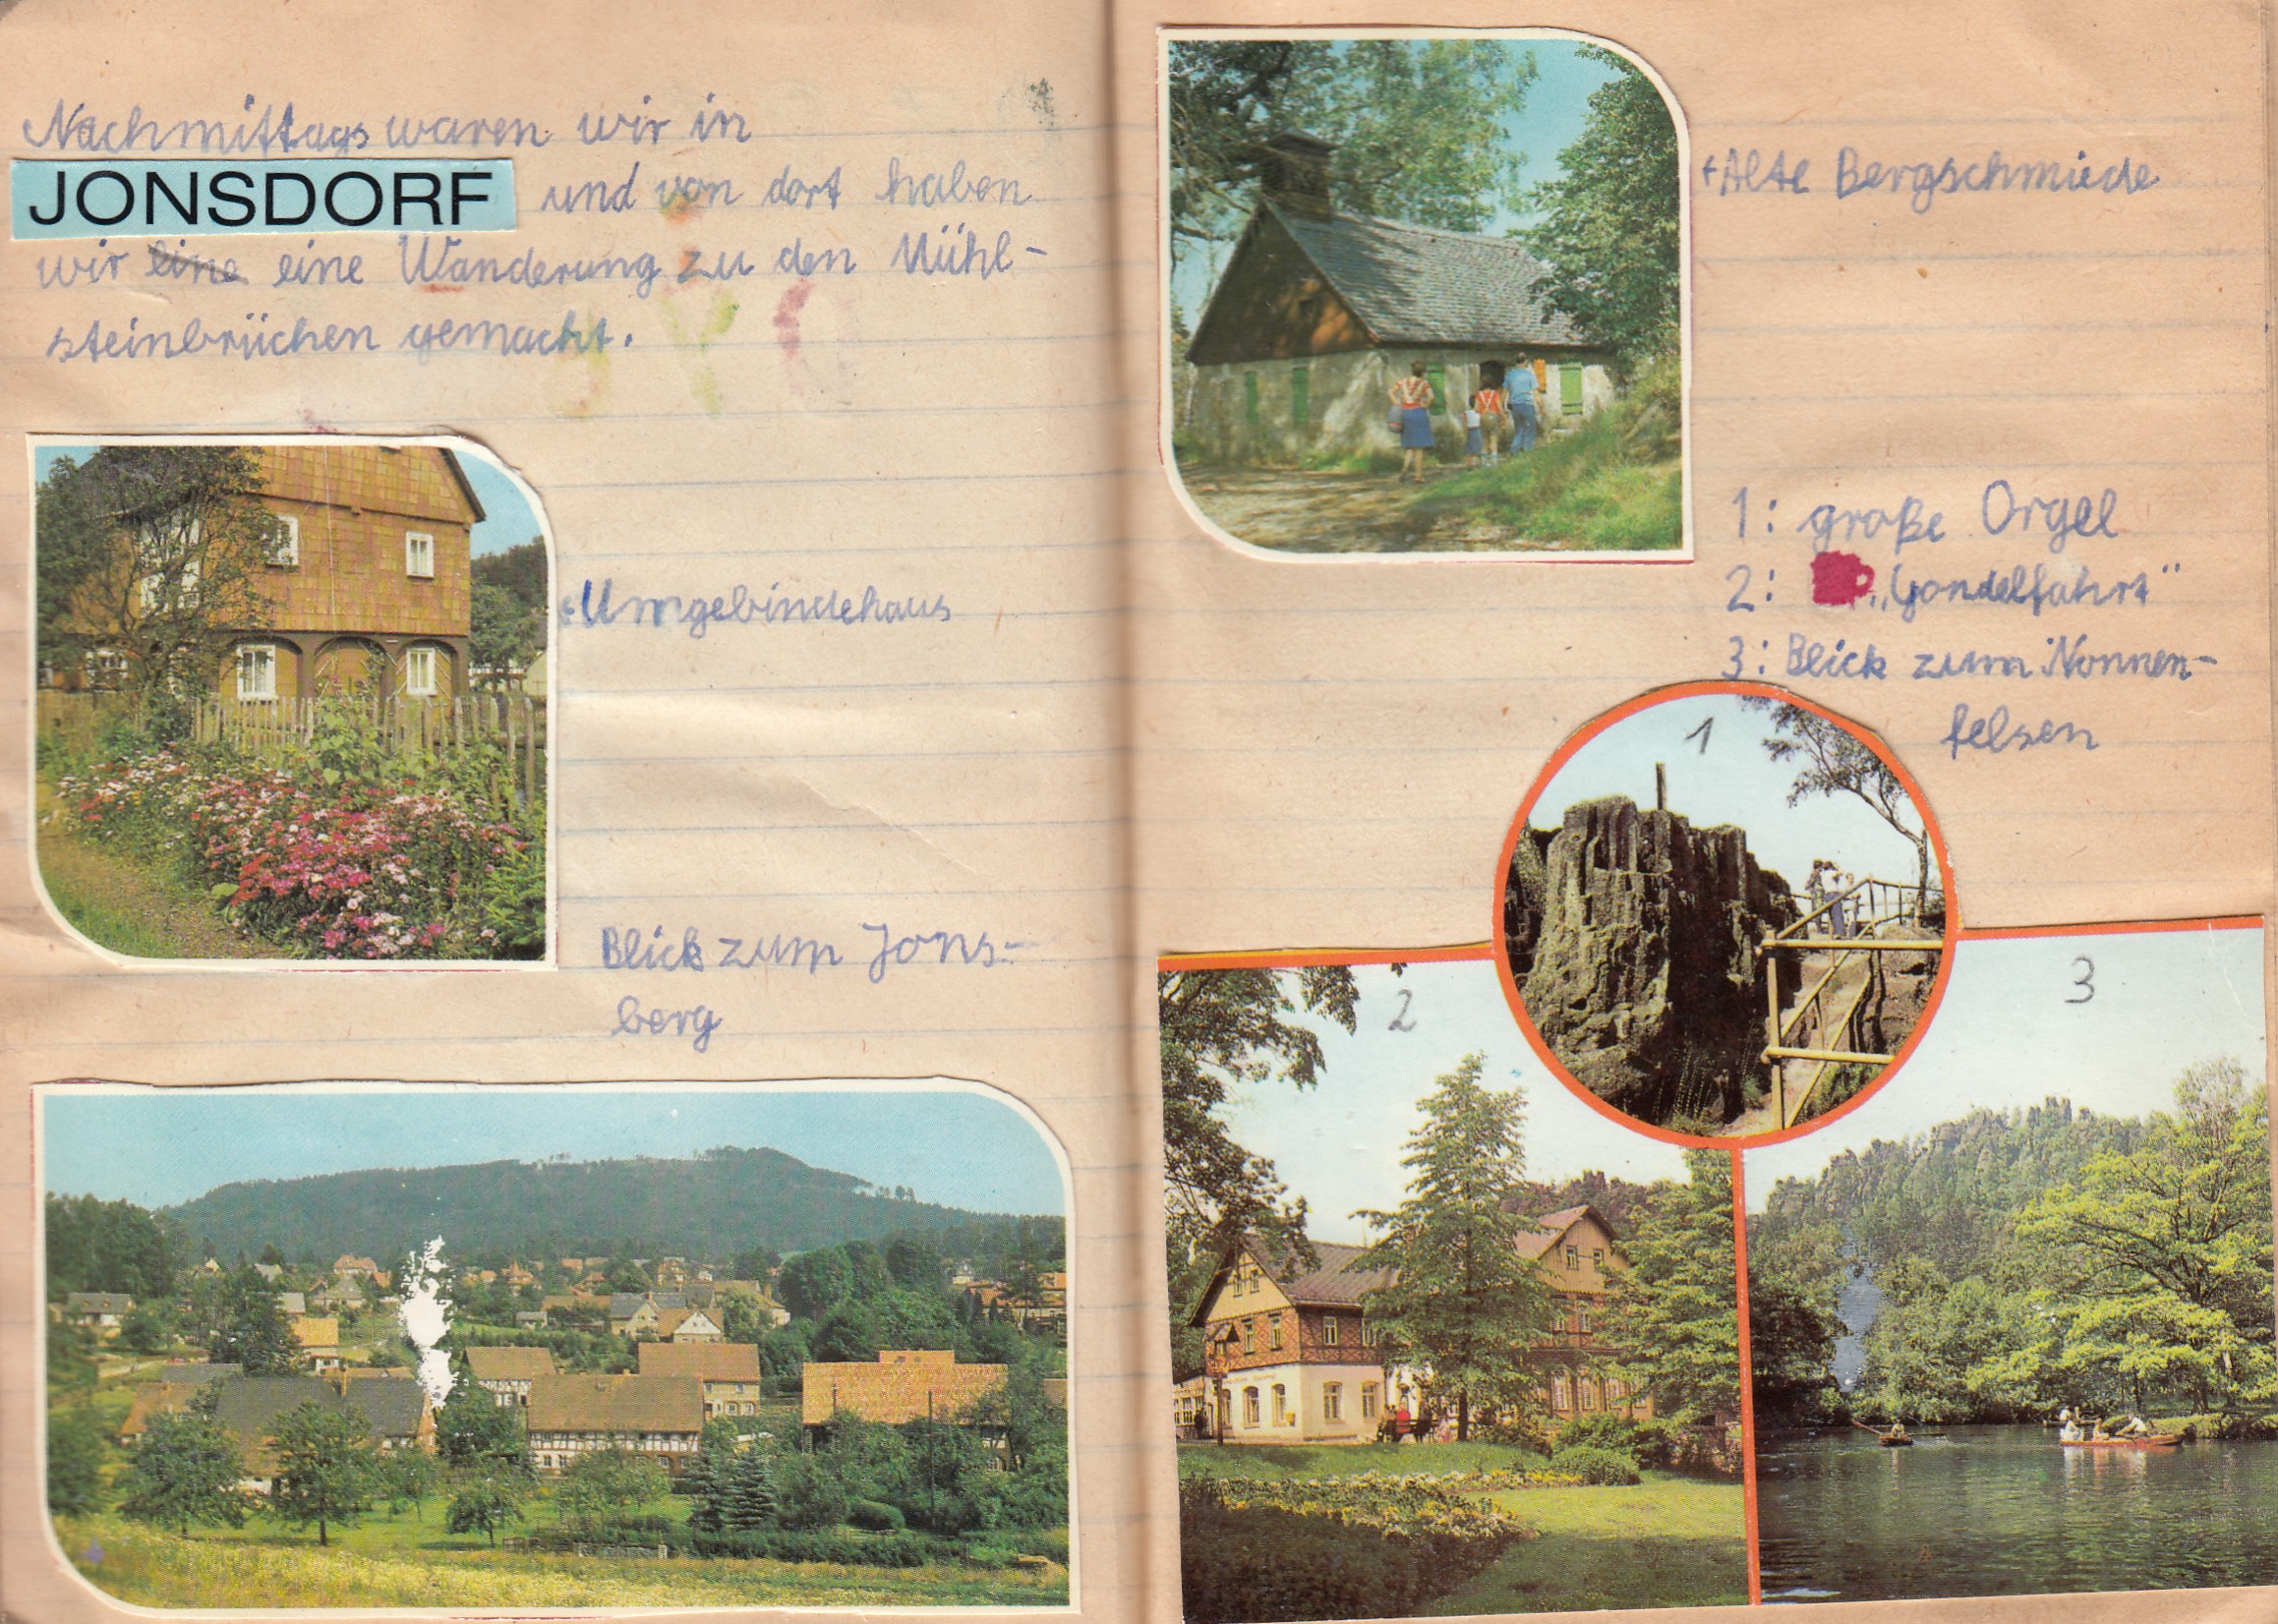 Nachmittags waren wir in
JONSDORF und von dort haben
wir eine eine Wanderung zu den Mühl-
steinbrüchen gemacht.
Umgebindehaus
Blick zum Jons-
berg
Alte Bergschmiede
1: große Orgel
2: „Gondelfahrt“
3: Blick zum Nonnen-
felsen
1
2
3